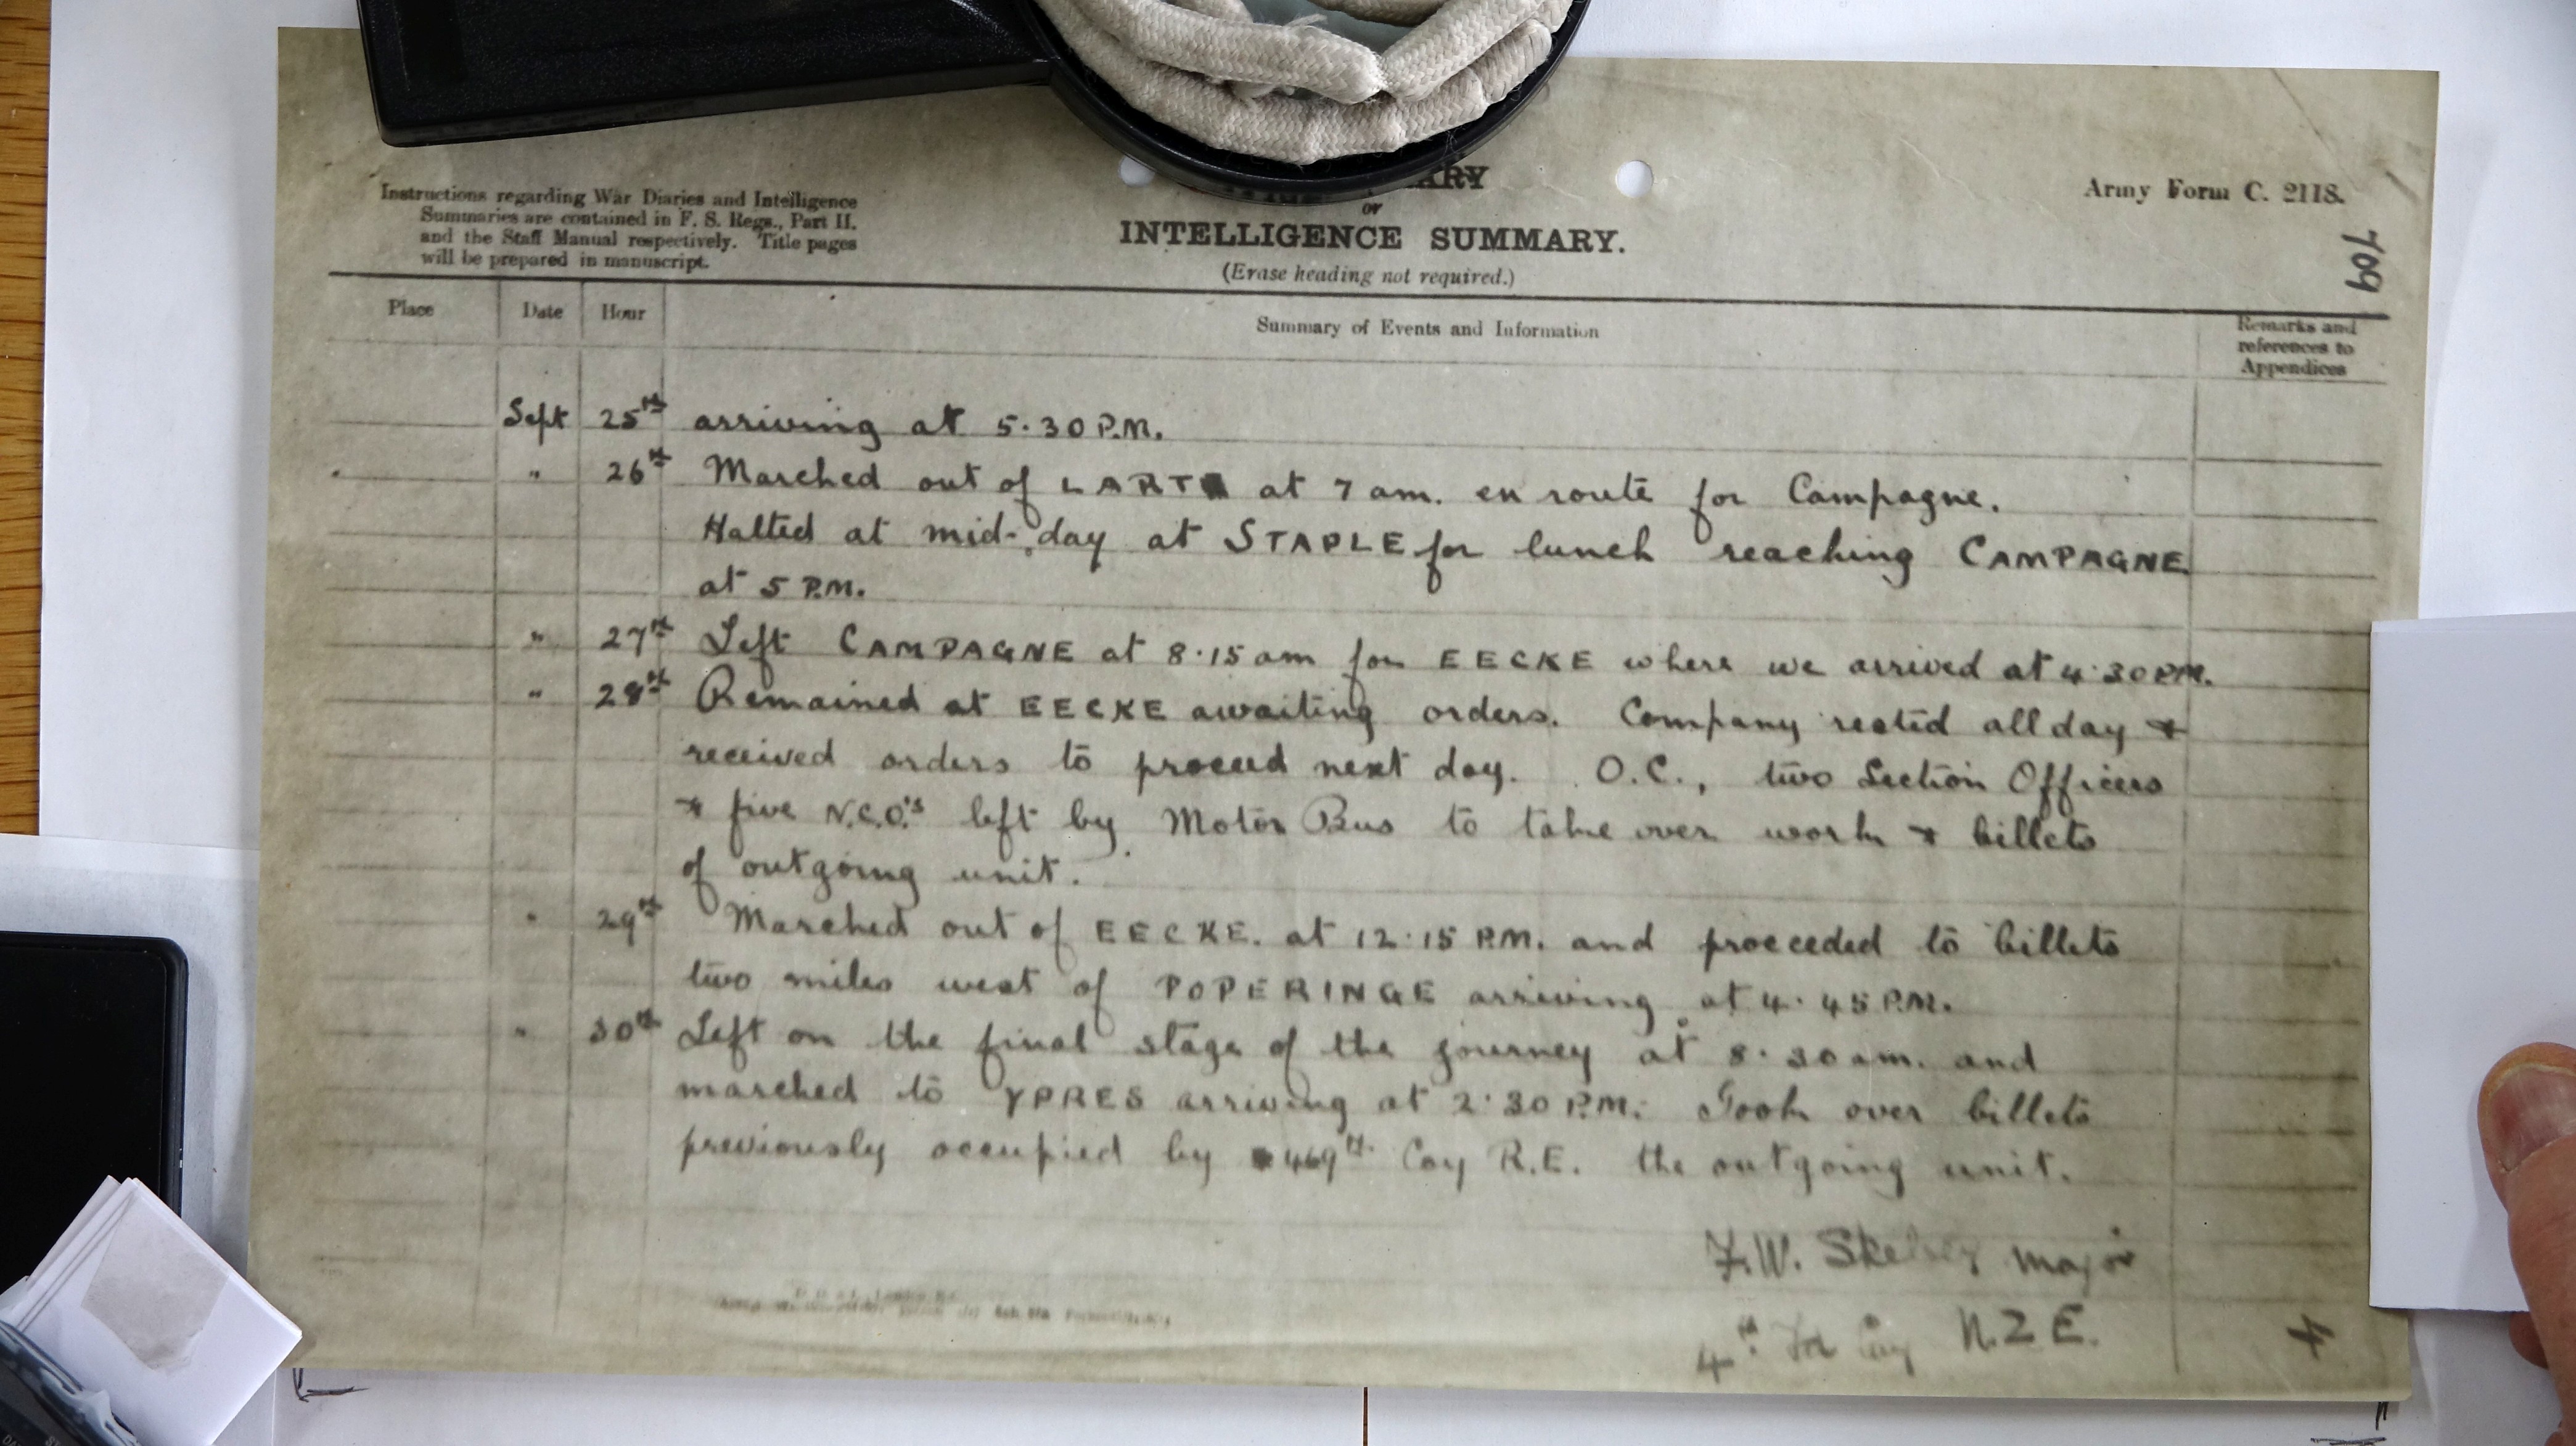 Army Form C. 2118.
Instructions regarding War Diaries and Intelligence
Summaries are contained in F. S. Regs., Part II.
and the Staff Manual respectively. Title pages
will be prepared in manuscript.
or
INTELLIGENCE SUMMARY.
(Erase heading not required.)
709
Place Date Hour Summary of Events and Information Remarks and references to Appendices
Sept 25th arriving at 5.30 P.M.
" 26th Marched out of LART at 7 am. en route for Campagne.
Halted at mid-day at STAPLE for lunch reaching CAMPAGNE
at 5 P.M.
" 27th Left CAMPAGNE at 8.15 am for EECKE where we arrived at 4.30 PM.
" 28th Remained at EECKE awaiting orders. Company rested all day &
received orders to proceed next day. O.C., two Section Officers
& five N.C.O's left by Motor Bus to take over work & billets
of outgoing unit.
" 29th Marched out of EECKE. at 12.15 P.M. and proceeded to billets
two miles west of POPERINGE arriving at 4.45 P.M.
" 30th Left on the final stage of the journey at 8.30 am. and
marched to YPRES arriving at 2.30 P.M. Took over billets
previously occupied by 469th Coy R.E. the outgoing unit.
F.W. Major
4th Coy N.Z.E.
4